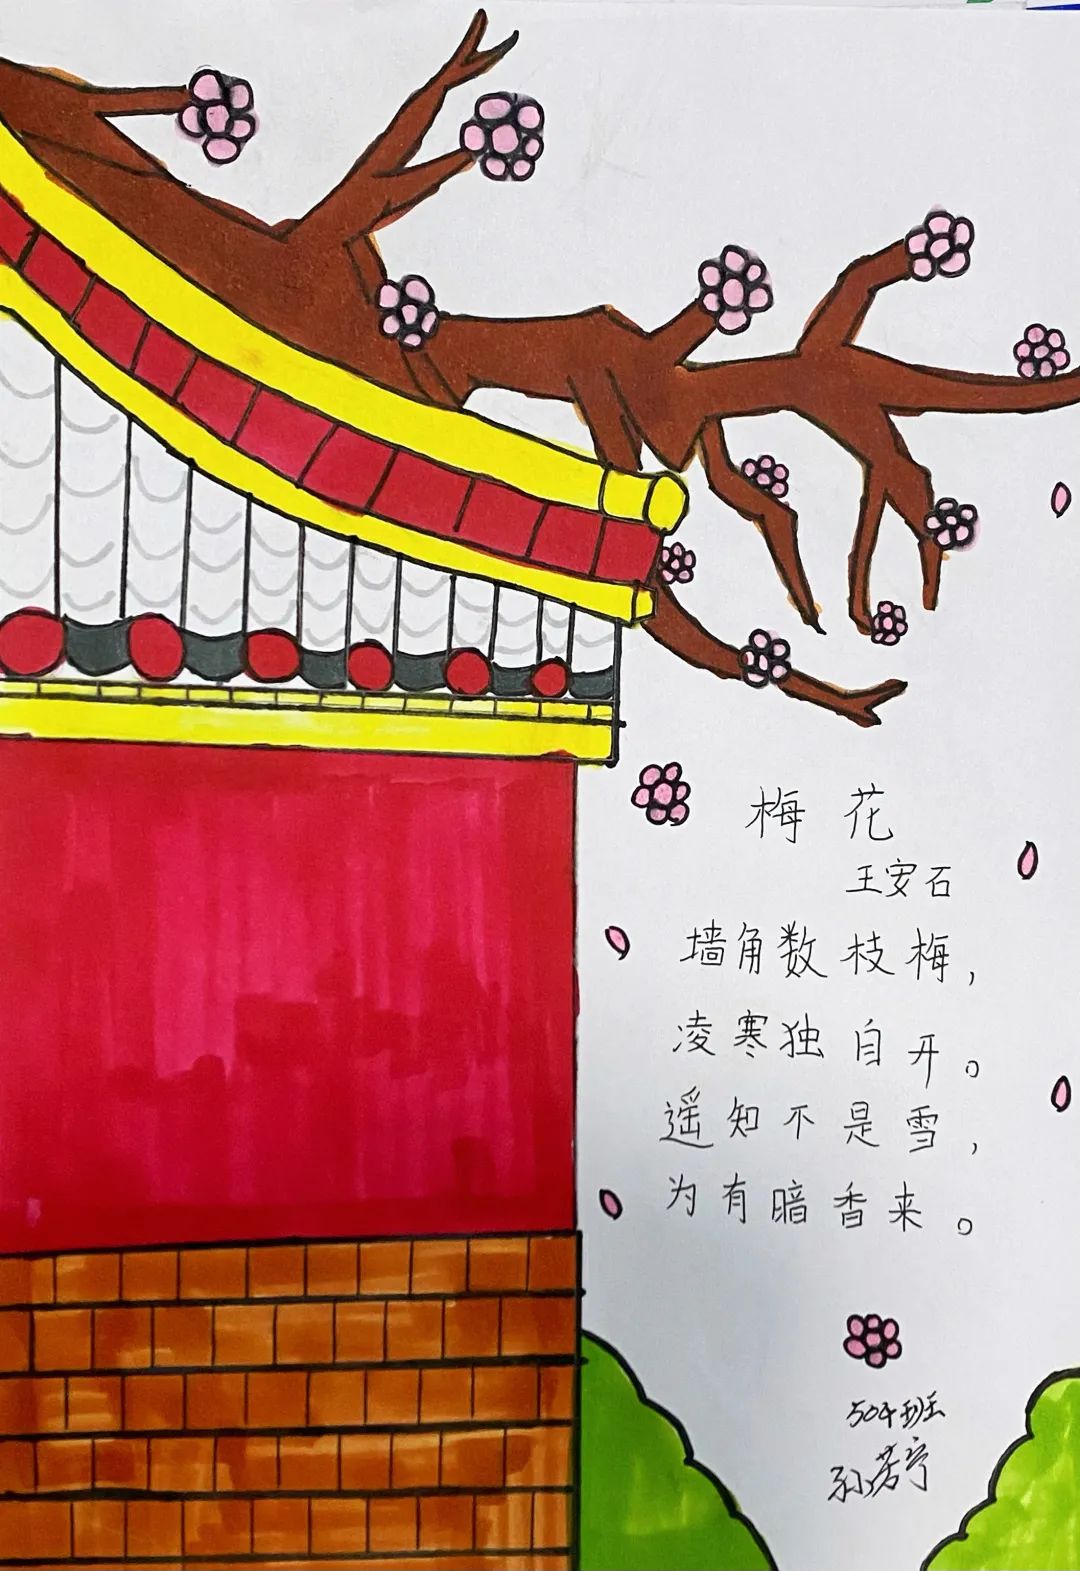 梅花
王安石
墙角数枝梅，
凌寒独自开。
遥知不是雪，
为有暗香来。
504班
孙芳宁